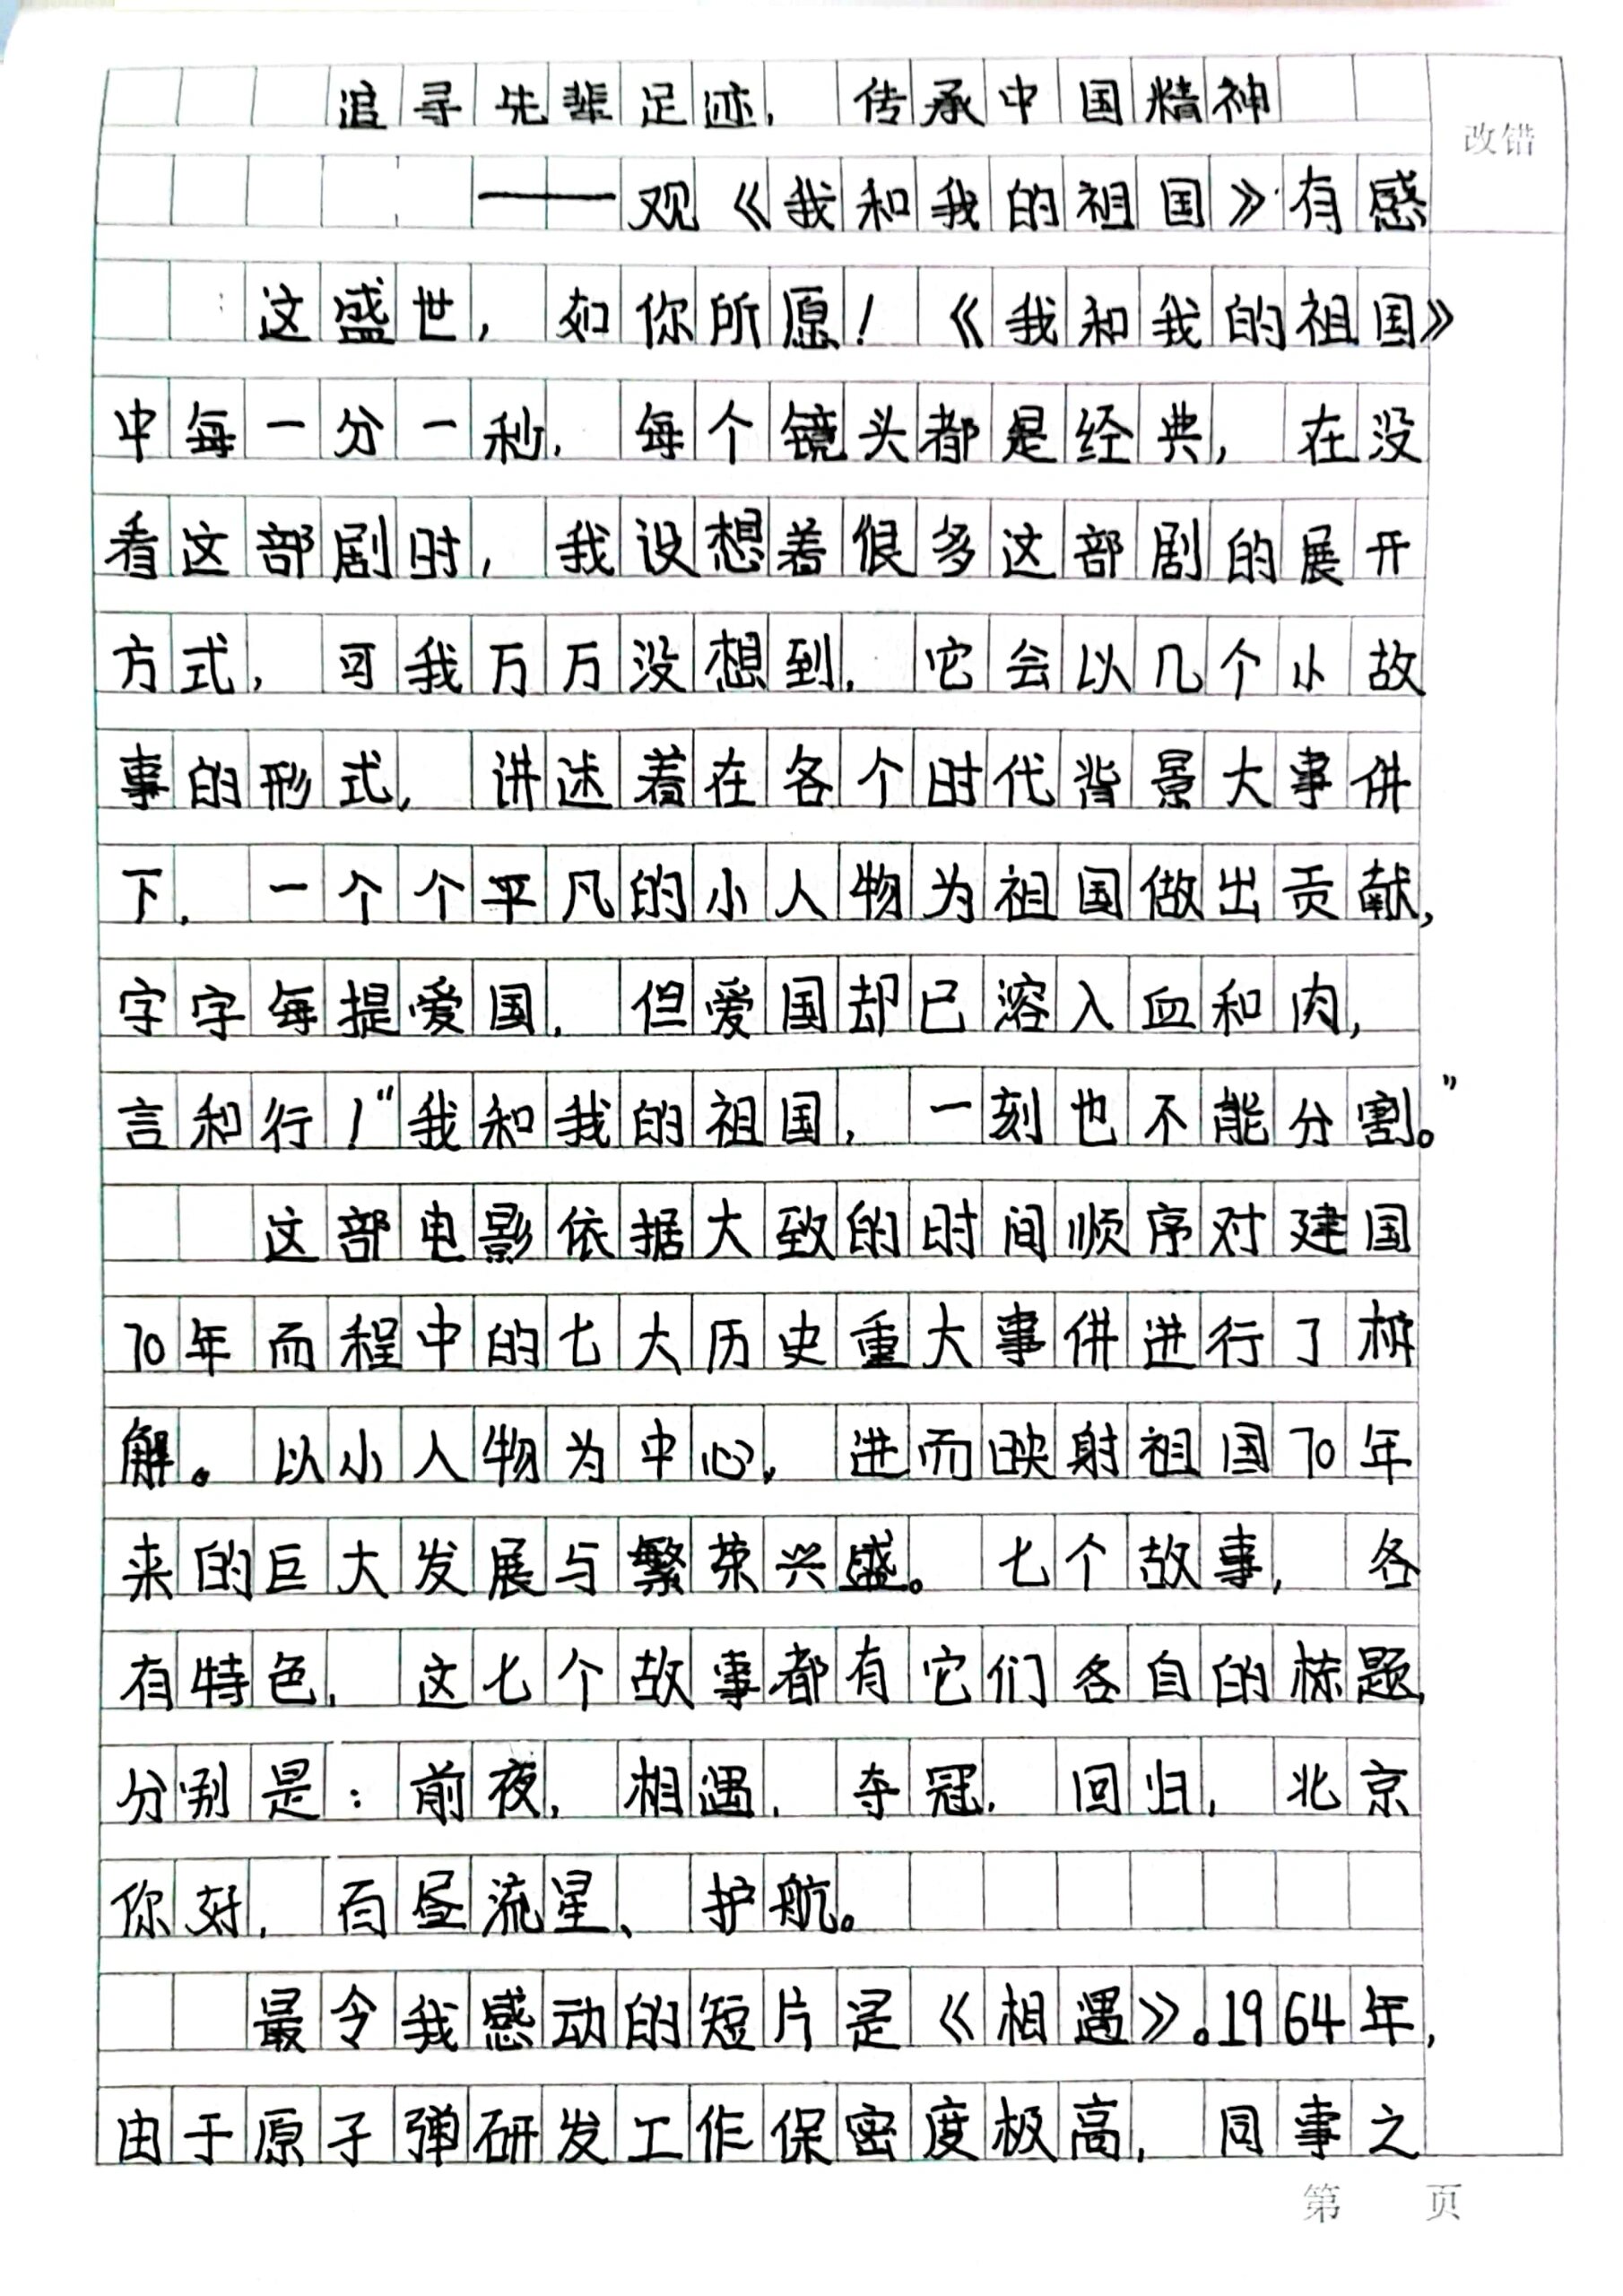 追寻先辈足迹，传承中国精神
改错
——观《我和我的祖国》有感
这盛世，如你所愿！《我和我的祖国》
中每一分一秒，每个镜头都是经典，在没
看这部剧时，我设想着很多这部剧的展开
方式，可我万万没想到，它会以几个小故
事的形式，讲述着在各个时代背景大事件
下，一个个平凡的小人物为祖国做出贡献，
字字每提爱国，但爱国却已溶入血和肉，
言和行！“我和我的祖国，一刻也不能分割。”
这部电影依据大致的时间顺序对建国
70年而程中的七大历史重大事件进行了拆
解。以小人物为中心，进而映射祖国70年
来的巨大发展与繁荣兴盛。七个故事，各
有特色，这七个故事都有它们各自的标题，
分别是：前夜，相遇，夺冠，回归，北京
你好，白昼流星、护航。
最令我感动的短片是《相遇》。1964年，
由于原子弹研发工作保密度极高，同事之
第 页